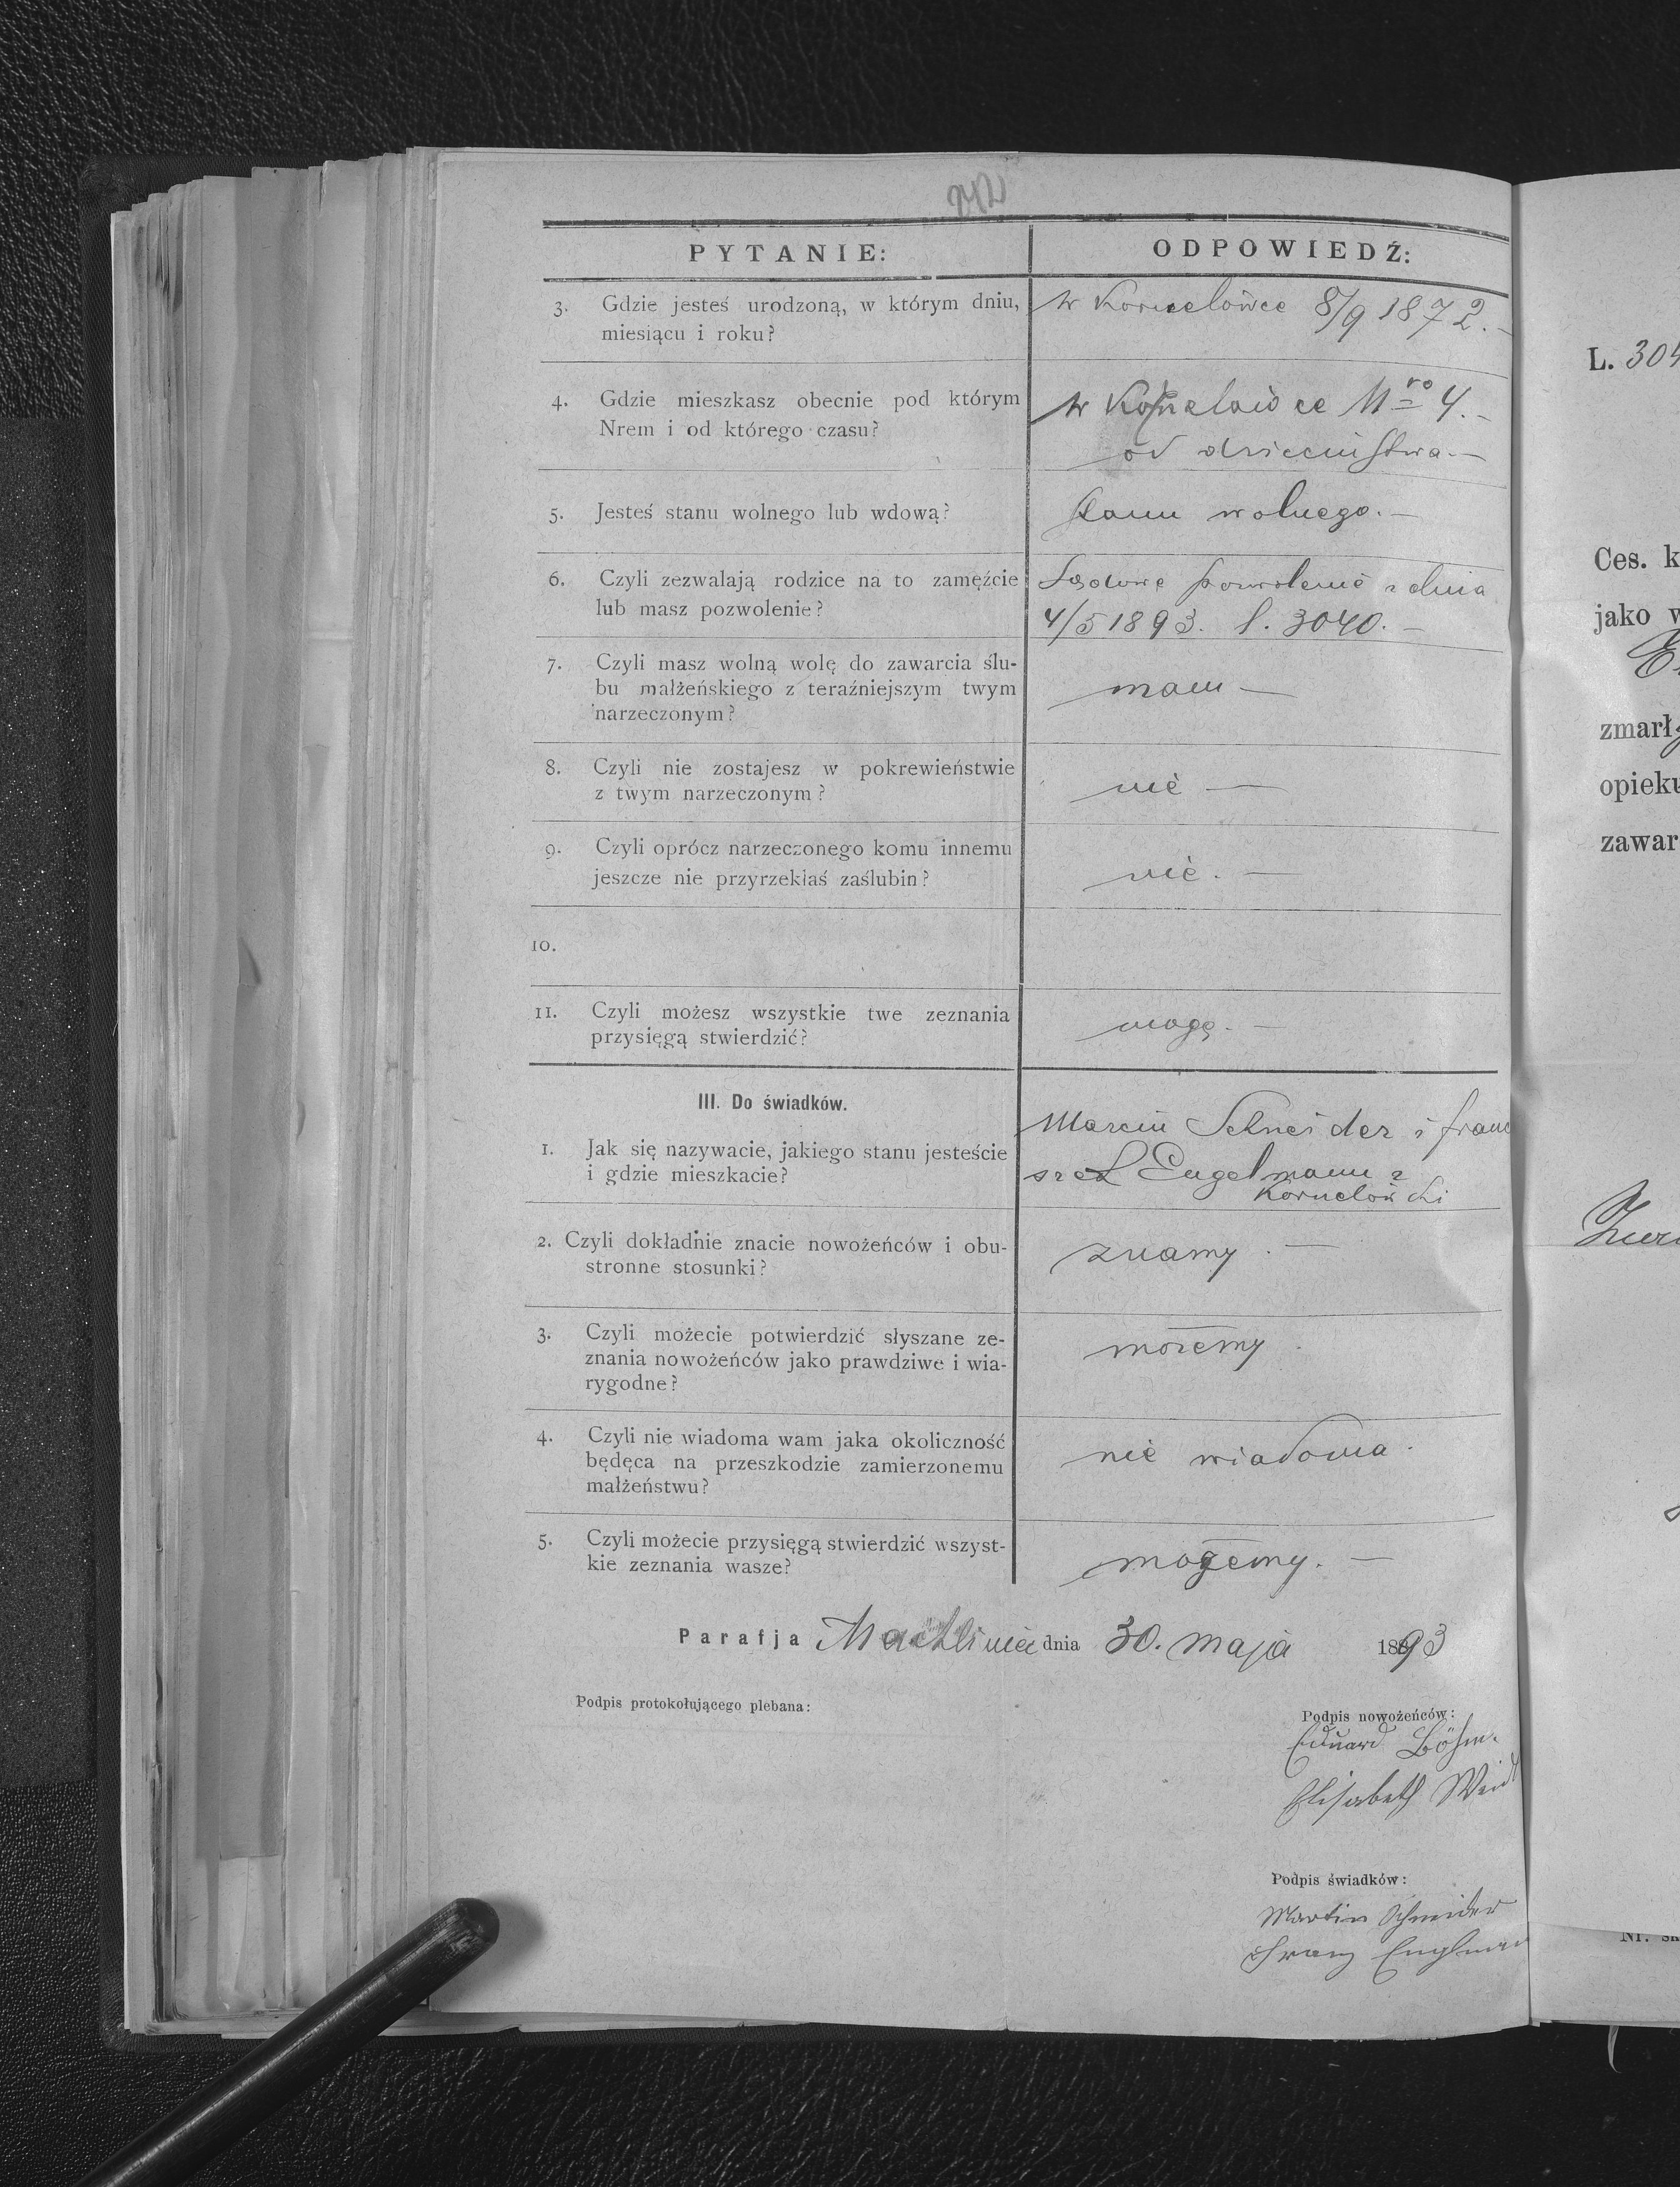 242
PYTANIE: ODPOWIEDŹ:
3. Gdzie jesteś urodzoną, w którym dniu, miesiącu i roku?
w Kornelówce 8/9 1872.-
4. Gdzie mieszkasz obecnie pod którym
Nrem i od którego czasu?
w Kornelowce Nro 4.-
od dzieciństwa.-
5. Jesteś stanu wolnego lub wdową?
stanu wolnego.-
6. Czyli zezwalają rodzice na to zamęźcie
lub masz pozwolenie?
Sądowe pozwolenie z dnia
4/5 1893. l. 3040.-
7. Czyli masz wolną wolę do zawarcia ślu-
bu małżeńskiego z teraźniejszym twym
narzeczonym?
mam -
8. Czyli nie zostajesz w pokrewieństwie
z twym narzeczonym?
nie -
9. Czyli oprócz narzeczonego komu innemu
jeszcze nie przyrzekłaś zaślubin?
nie.-
10.
11. Czyli możesz wszystkie twe zeznania
przysięgą stwierdzić?
mogę.-
III. Do świadków.
1. Jak się nazywacie, jakiego stanu jesteście
i gdzie mieszkacie?
Marcin Schneider i Franc
szek Engelmann z
Kornelówki
2. Czyli dokładnie znacie nowożeńców i obu-
stronne stosunki?
znamy.-
3. Czyli możecie potwierdzić słyszane ze-
znania nowożeńców jako prawdziwe i wia-
rygodne?
możemy
4. Czyli nie wiadoma wam jaka okoliczność
będęca na przeszkodzie zamierzonemu
małżeństwu?
nie wiadoma.
5. Czyli możecie przysięgą stwierdzić wszyst-
kie zeznania wasze?
możemy.-
Parafja Machliniec dnia 30. maja 1893
Podpis protokołującego plebana:
Podpis nowożeńców:
Eduard Böhm.
Elisabeth Weid
Podpis świadków:
Martin Schneider
Franz Englman
L. 304
Ces. k
jako w
zmarły
opieku
zawar